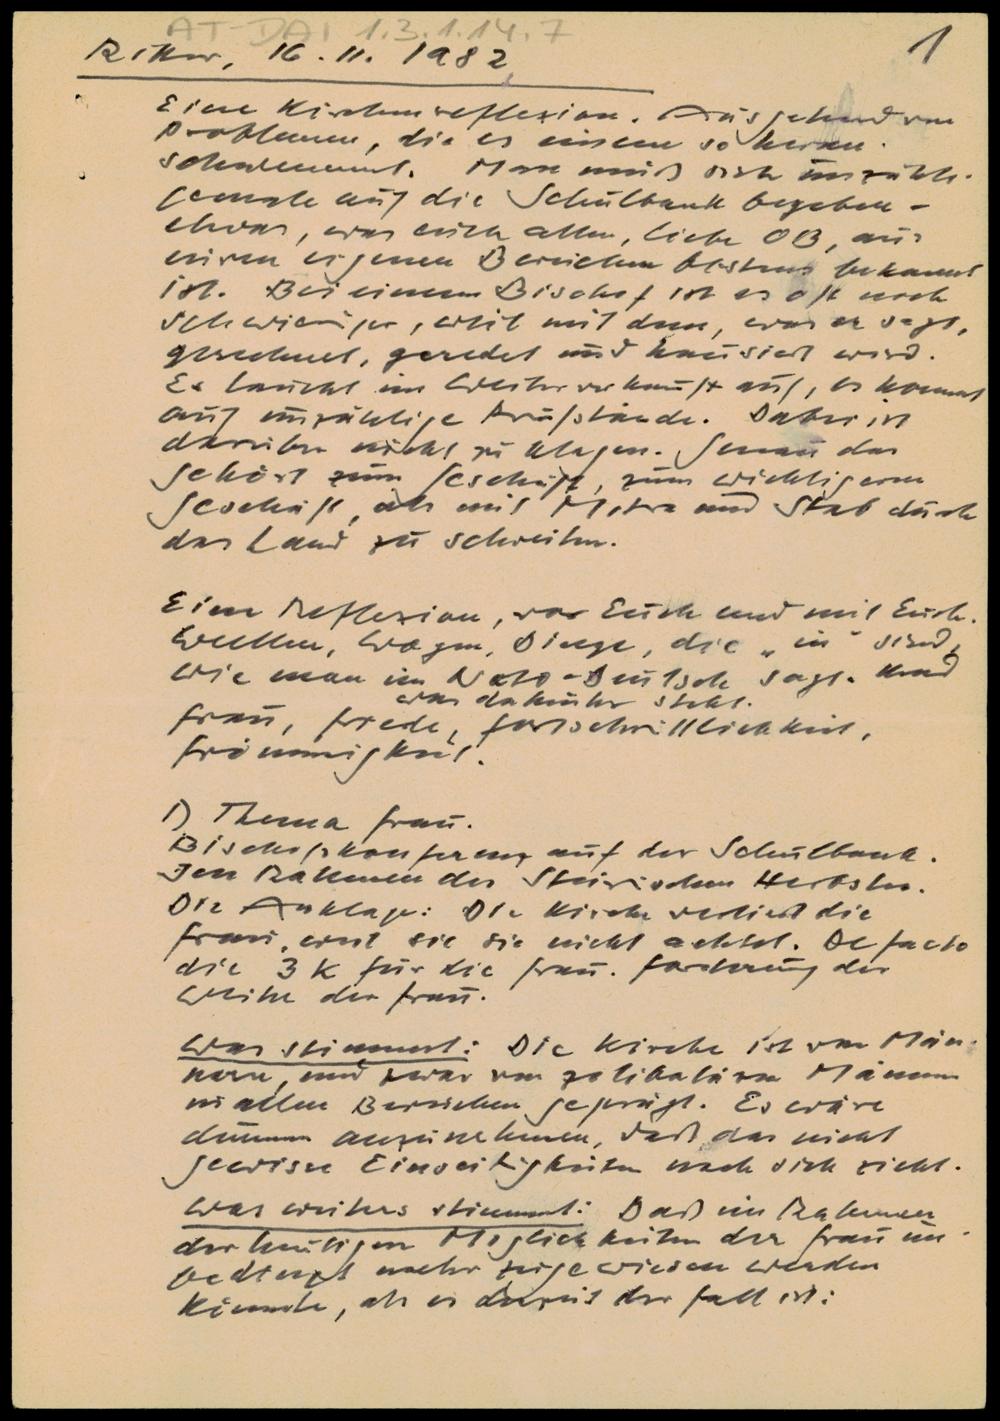 AT-DAI 1.3.1.14.7
1
Ritter, 16.11.1982
Eine Kirchenreflexion. Ausgehend von
Problemen, die es einem so heran-
schwemmt. Man muß sich unzähli-
gemale auf die Schulbank begeben -
etwas, was euch allen, liebe OB, aus
euren eigenen Bereichen bestens bekannt
ist. Bei einem Bischof ist es oft noch
schwieriger, weil mit dem, was er sagt,
gerechnet, geredet und hausiert wird.
Es taucht im Weiterverkauf auf, es kommt
auf unzählige Prüfstände. Dabei ist
darüber nicht zu klagen. Genau das
gehört zum Geschäft, zum wichtigeren
Geschäft, als mit Mitra und Stab durch
das Land zu schreiten.
Eine Reflexion, vor Euch und mit Euch.
Wellen, Wogen, Dinge, die „in" sind,
wie man im Nato-Deutsch sagt. Und
was dahinter steht.
Frau, Friede, Fortschrittlichkeit,
Frömmigkeit.
1) Thema Frau.
Bischofskonferenz auf der Schulbank.
Im Rahmen des Steirischen Herbstes.
Die Anklage: Die Kirche verliert die
Frau, weil sie sie nicht achtet. De facto
die 3 K für die Frau. Forderung der
Weihe der Frau.
Was stimmt: Die Kirche ist von Män-
nern, und zwar von zölibatären Männern
in allen Bereichen geprägt. Es wäre
dumm anzunehmen, daß das nicht
gewisse Einseitigkeiten nach sich zieht.
Was weiters stimmt: Daß im Rahmen
der heutigen Möglichkeiten der Frau un-
bedingt mehr zugewiesen werden
könnte, als es derzeit der Fall ist: